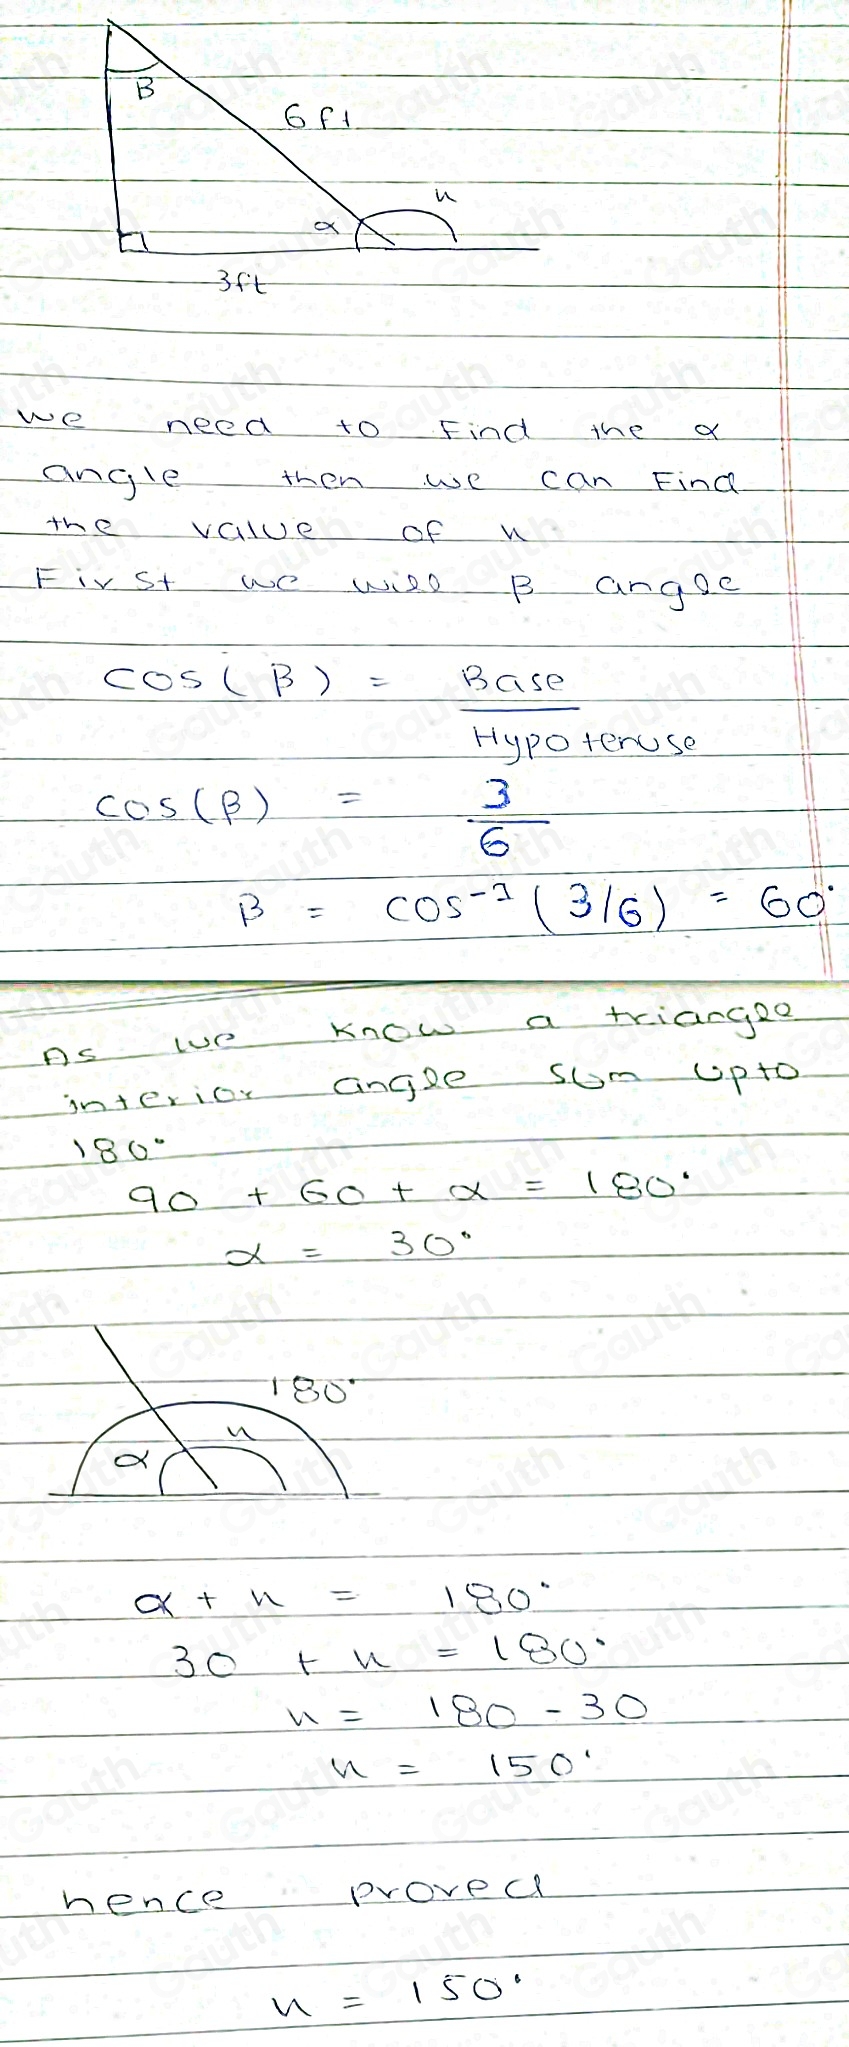 B
6 ft
α
x
3ft
we need to Find the α
angle then we can Find
the value of x
First we will β angle
cos(β) = Base
Hypotenuse
cos(β) = 3
6
β = cos⁻¹(3/6) = 60°
As we know a triangle
interior angle sum upto
180°
90 + 60 + α = 180°
α = 30°
180°
α x
α + x = 180°
30 + x = 180°
x = 180 - 30
x = 150°
hence proved
x = 150°